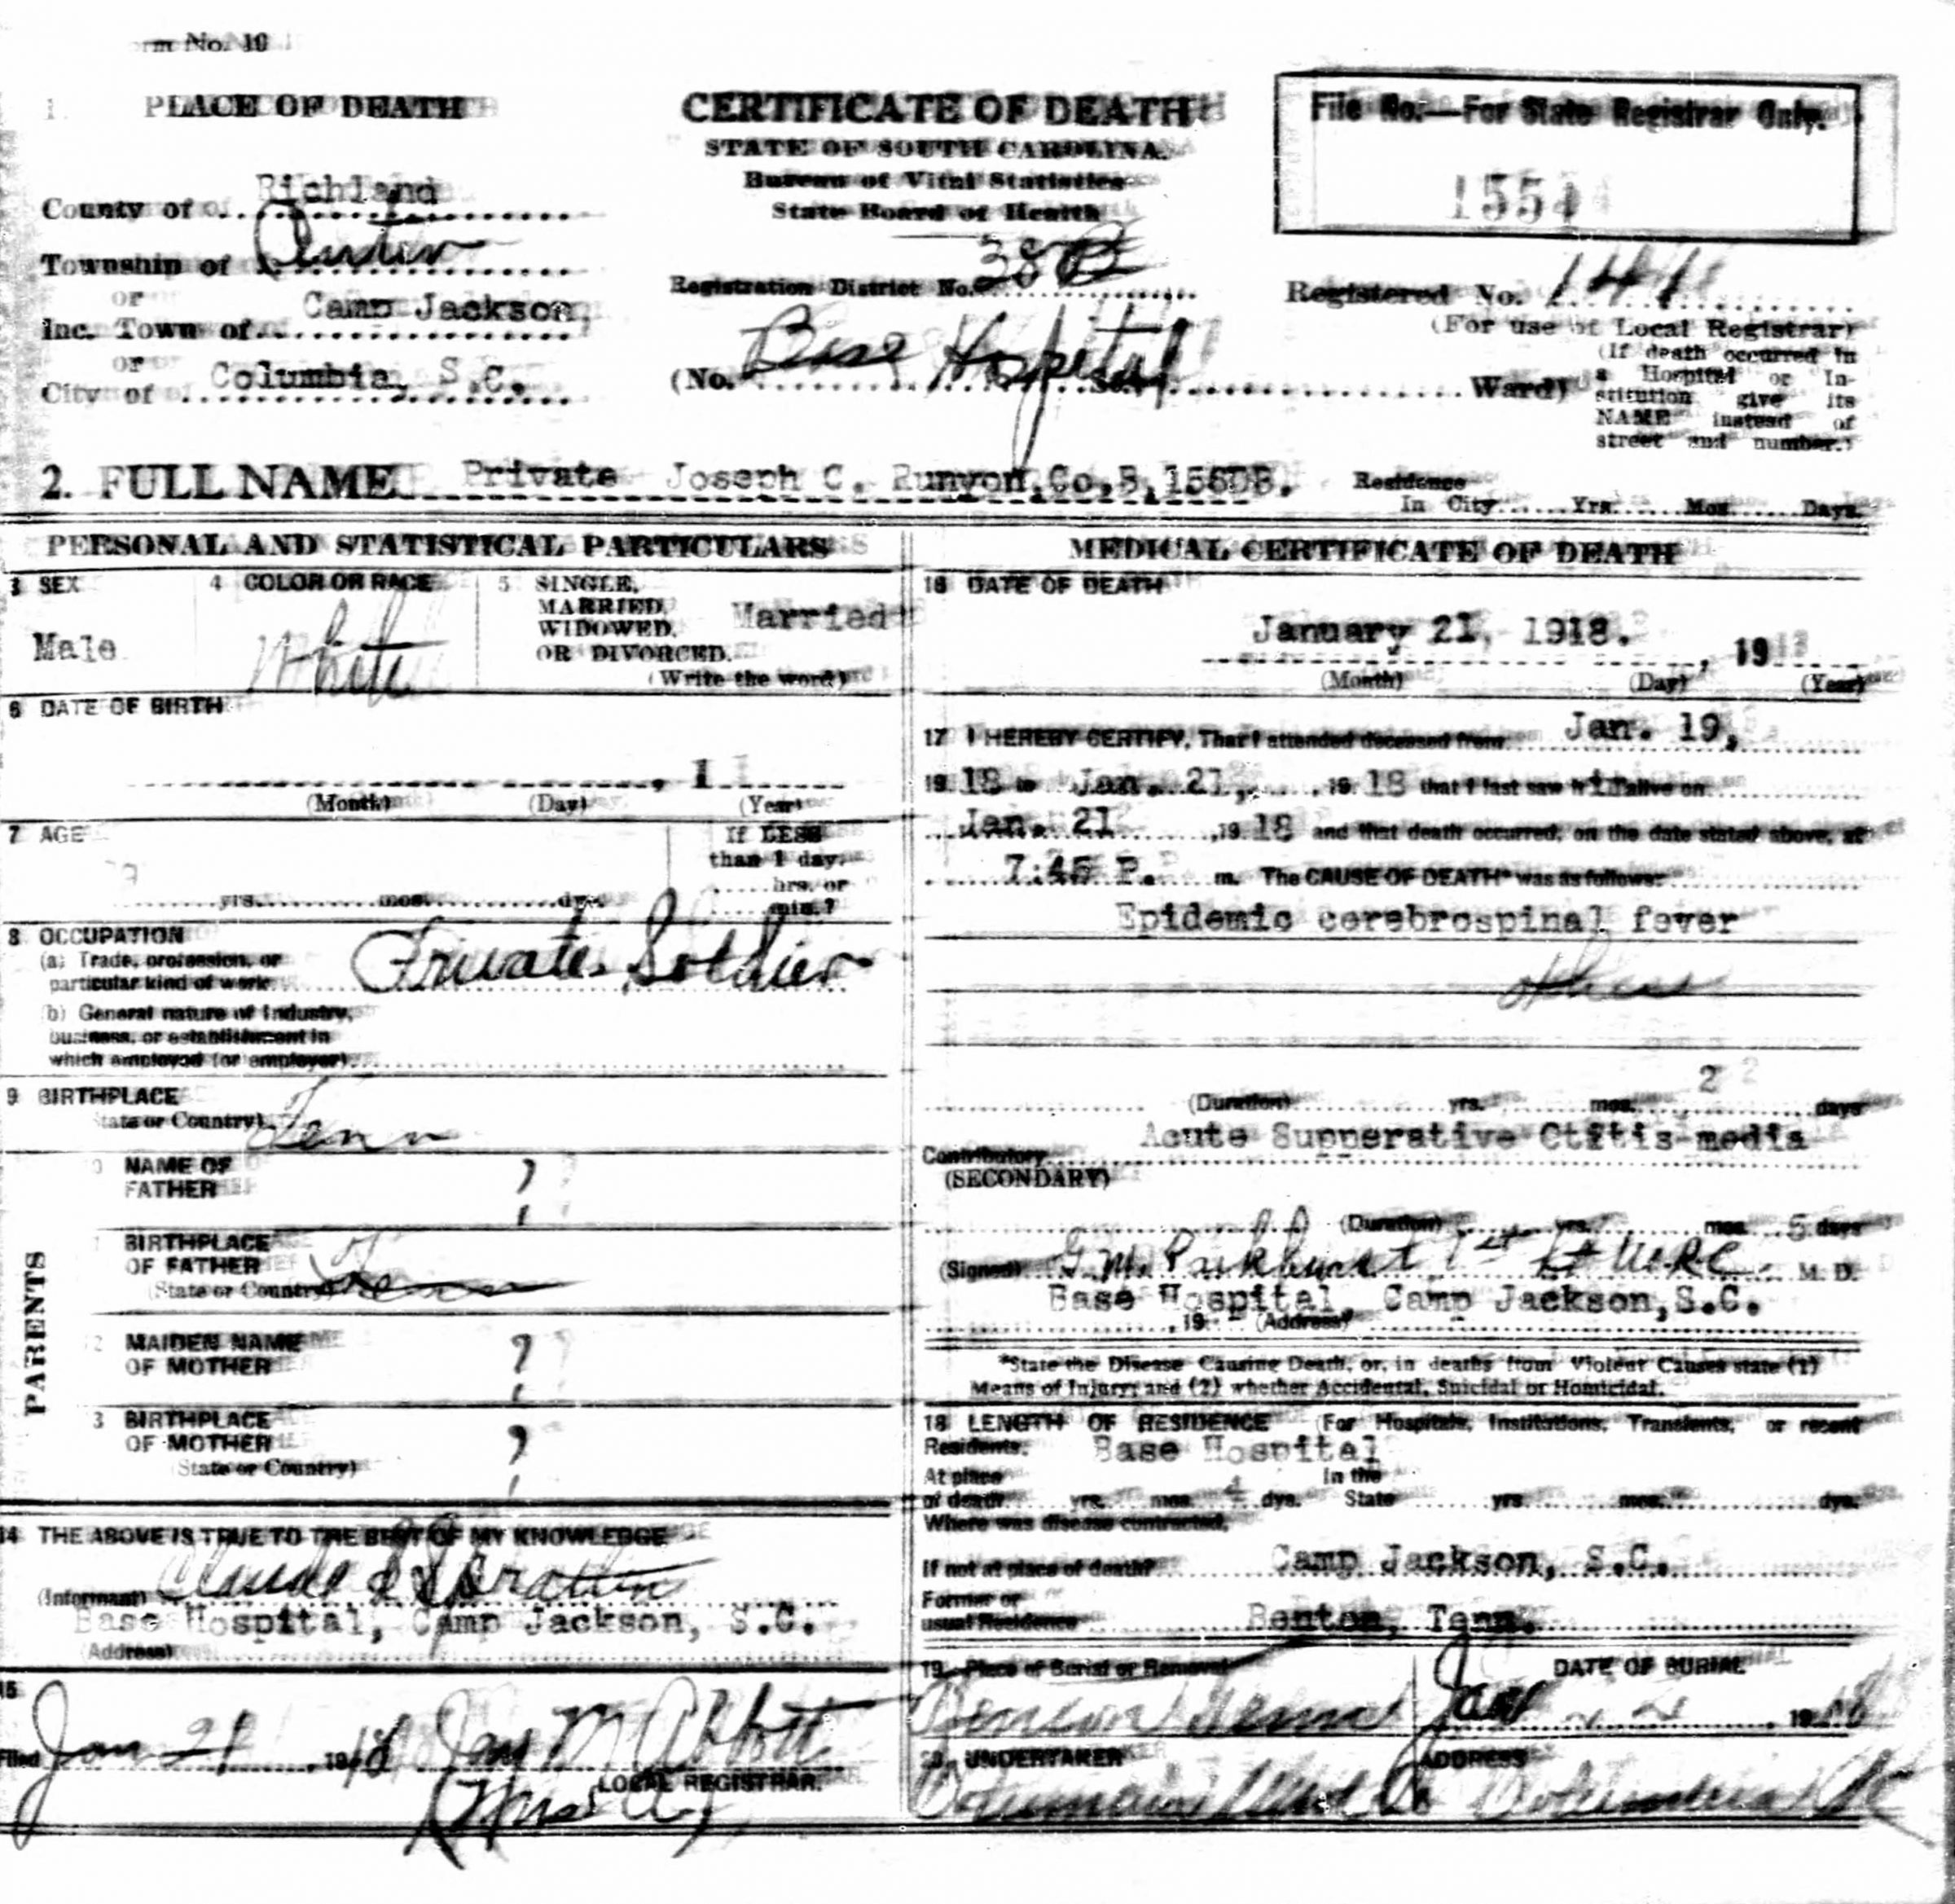 Form No. 10
1. PLACE OF DEATH
County of Richland
Township of
or
Inc. Town of Camp Jackson,
or
City of Columbia, S.C.
CERTIFICATE OF DEATH
STATE OF SOUTH CAROLINA.
Bureau of Vital Statistics
State Board of Health
Registration District No. 38B
(No. Base Hospital St.; Ward)
File No.—For State Registrar Only.
1554
Registered No. 141
(For use of Local Registrar)
(If death occurred in
a Hospital or In-
stitution give its
NAME instead of
street and number.)
2. FULL NAME Private Joseph C. Runyon, Co, B, 156DB.
Residence
In City Yrs. Mos. Days.
PERSONAL AND STATISTICAL PARTICULARS
3 SEX
Male
4 COLOR OR RACE
White
5 SINGLE,
MARRIED,
WIDOWED,
OR DIVORCED.
(Write the word)
Married
6 DATE OF BIRTH
, 1
(Month) (Day) (Year)
7 AGE
yrs. mos. dys.
If LESS
than 1 day,
hrs. or
min.?
8 OCCUPATION
(a) Trade, profession, or
particular kind of work Private Soldier
(b) General nature of Industry,
business, or establishment in
which employed (or employer)
9 BIRTHPLACE
(State or Country) Tenn
PARENTS
10 NAME OF
FATHER ?
11 BIRTHPLACE
OF FATHER
(State or Country) Tenn
12 MAIDEN NAME
OF MOTHER ?
13 BIRTHPLACE
OF MOTHER ?
(State or Country)
14 THE ABOVE IS TRUE TO THE BEST OF MY KNOWLEDGE
(Informant) Claude
Base Hospital, Camp Jackson, S.C.
(Address)
15
Filed Jan 21 1918 Jay M Abbott
LOCAL REGISTRAR.
MEDICAL CERTIFICATE OF DEATH
16 DATE OF DEATH
January 21, 1918.
, 19
(Month) (Day) (Year)
17 I HEREBY CERTIFY, That I attended deceased from Jan. 19,
1918 to Jan. 21, , 1918 that I last saw him alive on
Jan. 21 , 1918 and that death occurred, on the date stated above, at
7:45 P. m. The CAUSE OF DEATH* was as follows:
Epidemic cerebrospinal fever
(Duration) yrs. mos. 2 days
Acute Supperative Otitis media
Contributory
(SECONDARY)
(Duration) yrs. mos. 5 days
(Signed) G.M. Parkhurst 1st Lt MRC. M. D.
Base Hospital, Camp Jackson, S.C.
, 19 (Address)
*State the Disease Causing Death, or, in deaths from Violent Causes state (1)
Means of Injury; and (2) whether Accidental, Suicidal or Homicidal.
18 LENGTH OF RESIDENCE (For Hospitals, Institutions, Transients, or recent
Residents. Base Hospital
At place In the
of death yrs. mos. 4 dys. State yrs. mos. dys.
Where was disease contracted,
If not at place of death? Camp Jackson, S.C.
Former or
usual Residence Benton, Tenn.
19 Place of Burial or Removal
Tenn
DATE OF BURIAL
Jan 22 1918
20 UNDERTAKER
ADDRESS
Columbia